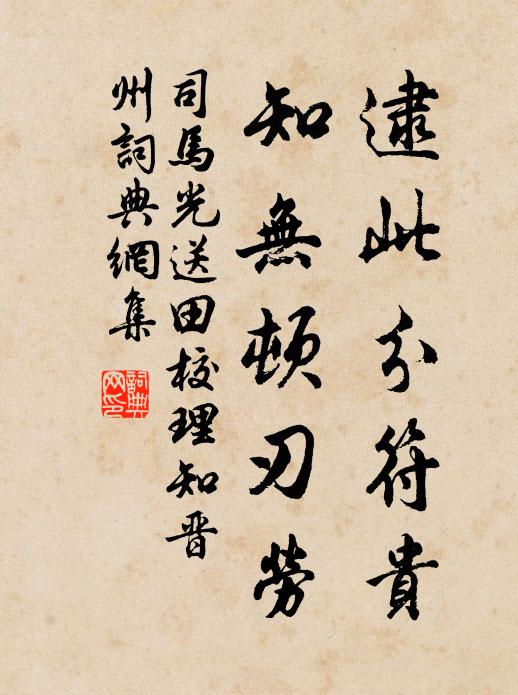 逮此分符貴
知無頓刃勞
司馬光送田校理知晋
州詞典網集
詞典網印